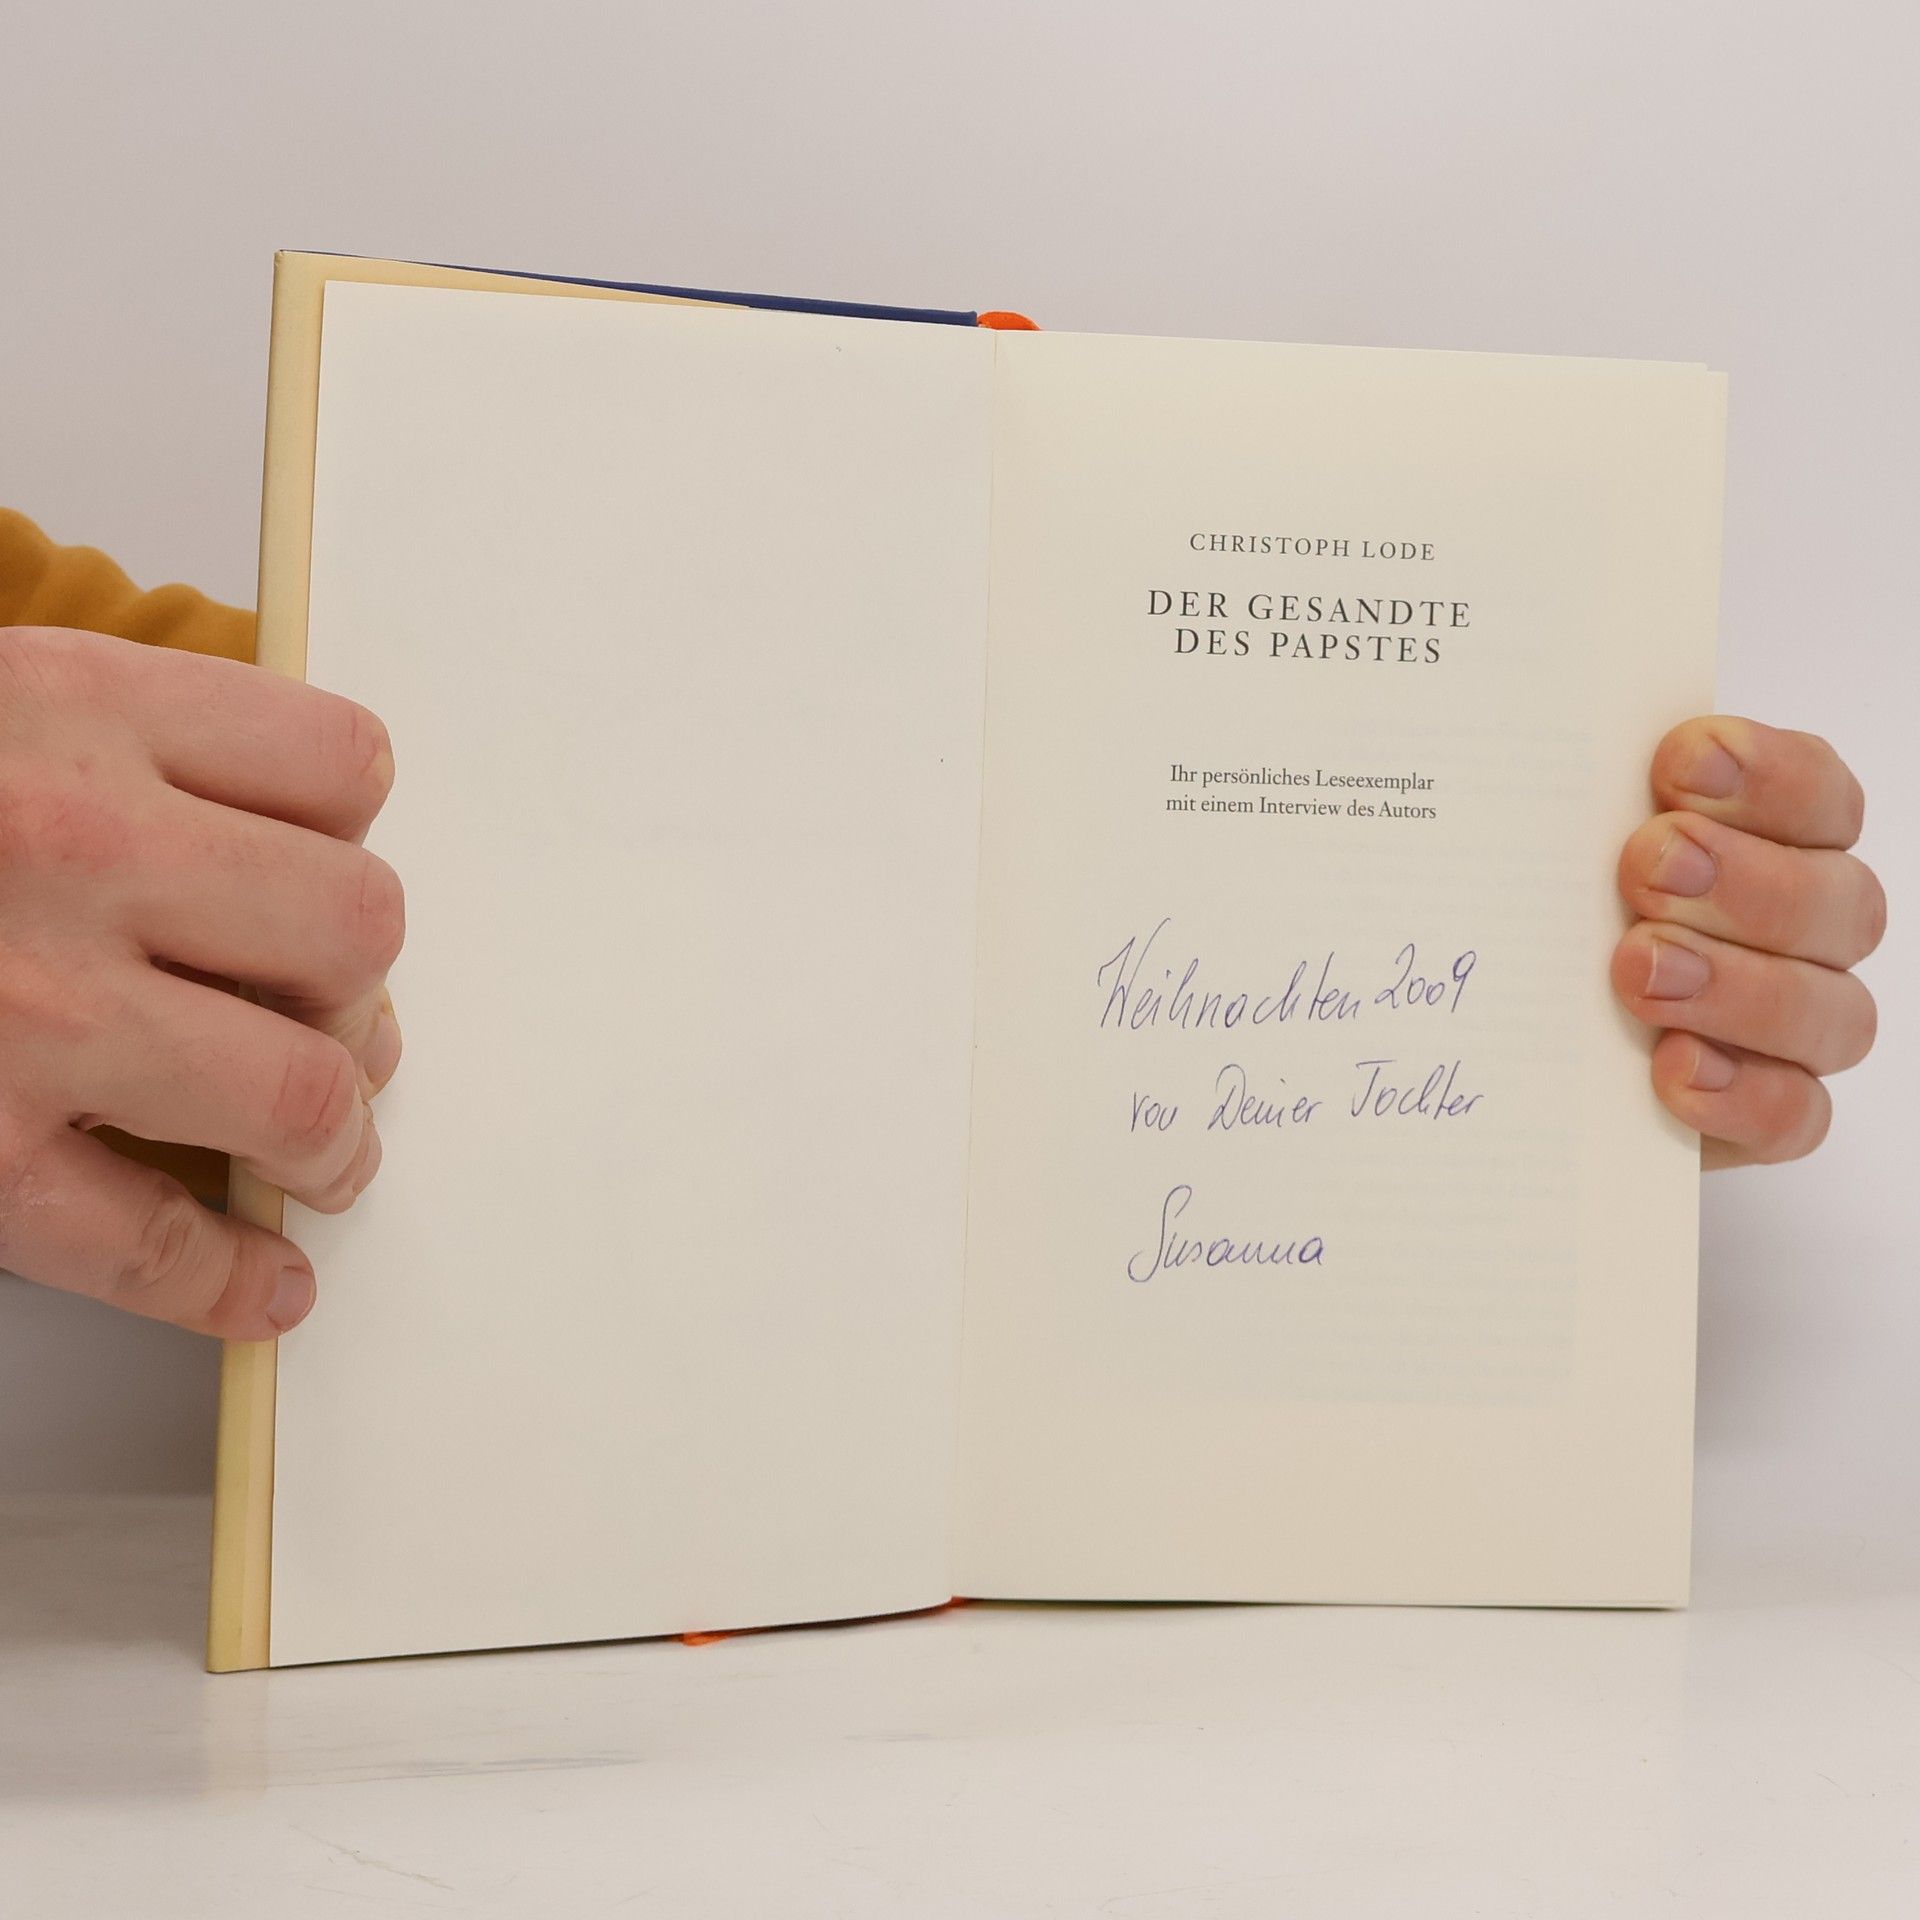 CHRISTOPH LODE
DER GESANDTE
DES PAPSTES
Ihr persönliches Leseexemplar
mit einem Interview des Autors
Weihnachten 2009
von Deiner Tochter
Susanna